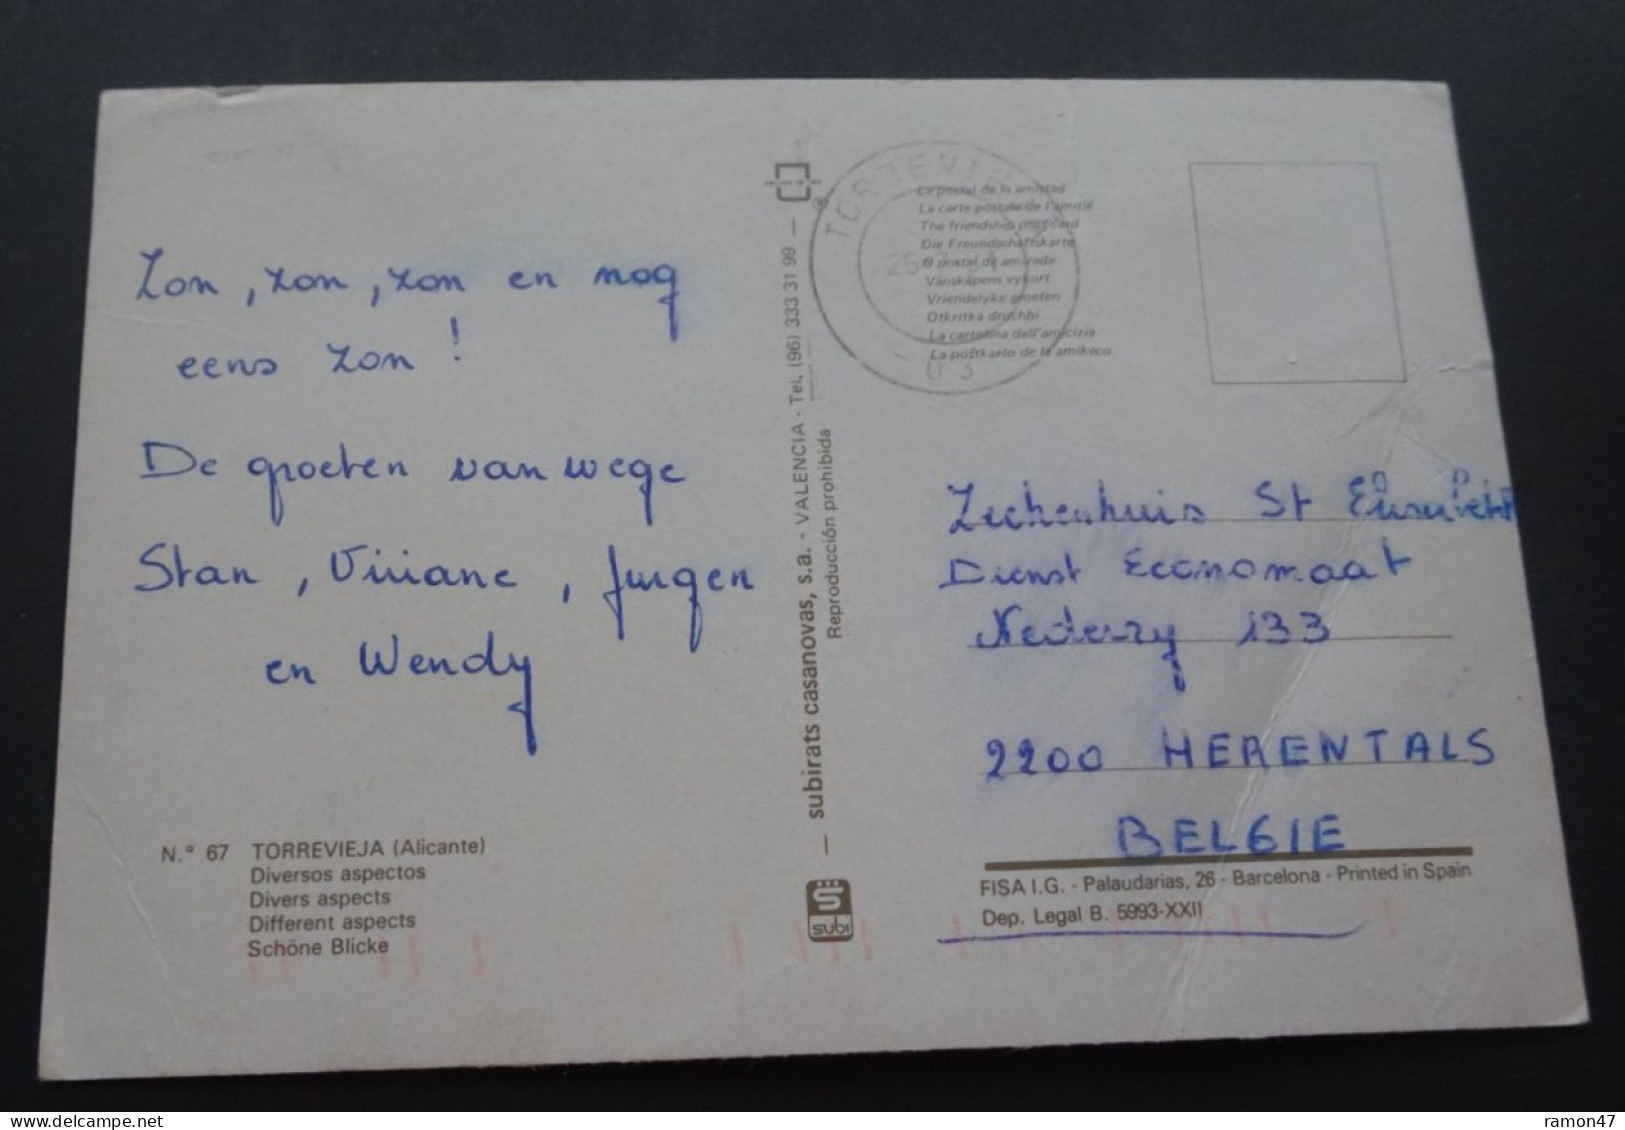 Zon, zon, zon en nog
eens zon !
De groeten vanwege
Stan, Viviane, Jurgen
en Wendy
N.° 67 TORREVIEJA (Alicante)
Diversos aspectos
Divers aspects
Different aspects
Schöne Blicke
subirats casanovas, s.a. - VALENCIA - Tel. (96) 333 31 99
Reproducción prohibida
subi
TORREVIEJA
25
03
La postal de la amistad
La carte postale de l'amitié
The friendship post card
Die Freundschaftskarte
O postal de amizade
Vänskapens vykort
Vriendelyke groeten
Otkritka druchbi
La cartolina dell'amicizia
La poŝtkarto de la amikeco
Ziekenhuis St Elisabeth
Dienst Economaat
Nederrij 133
2200 HERENTALS
BELGIE
FISA I.G. - Palaudarias, 26 - Barcelona - Printed in Spain
Dep. Legal B. 5993-XXII
delcampe.net
ramon47